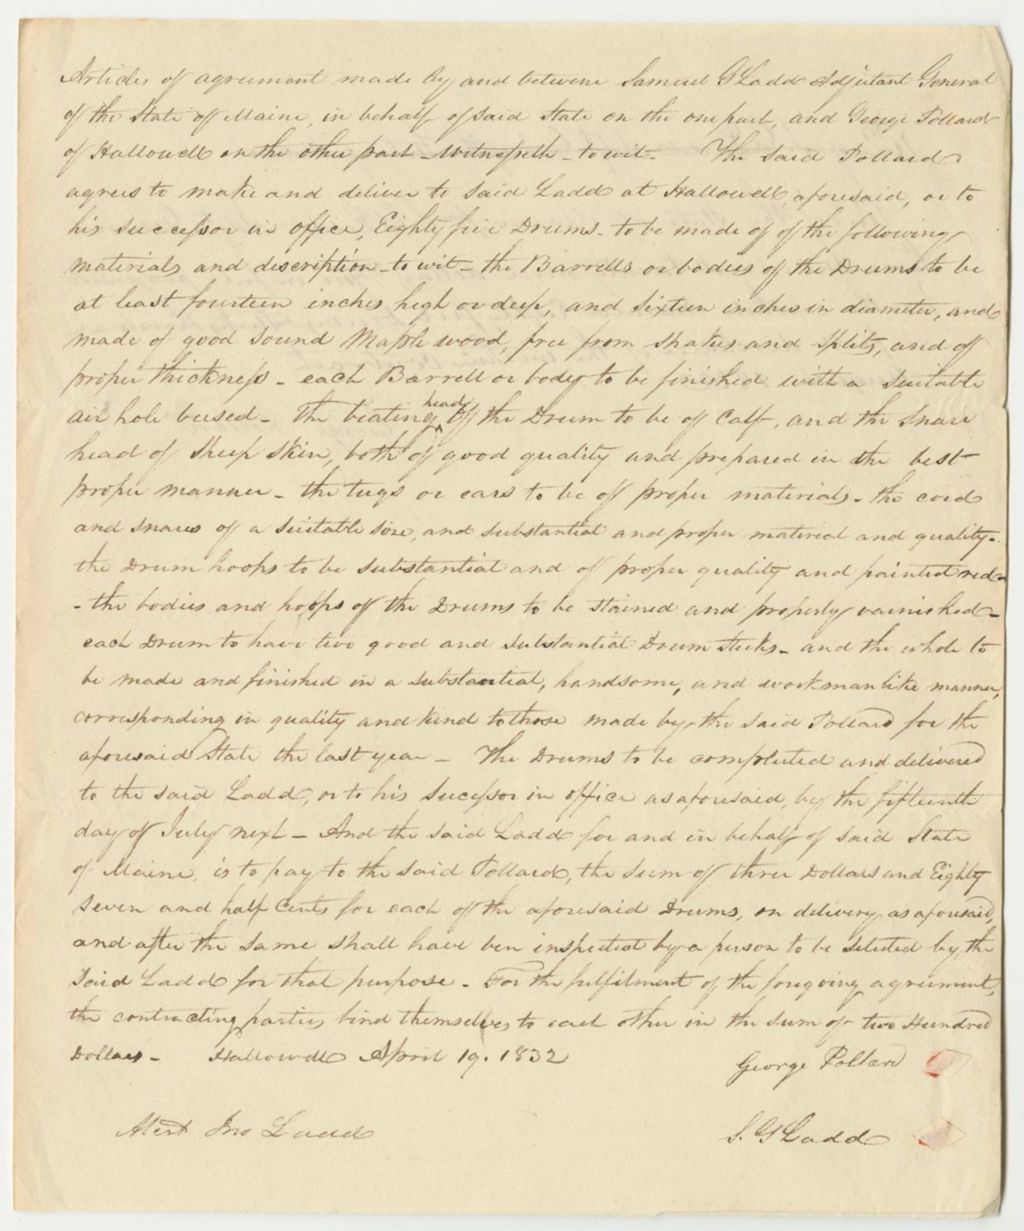 Articles of agreement made by and between Samuel G Ladd Adjutant General
of the State of Maine, in behalf of said State on the one part, and George Pollard
of Hallowell on the other part - Witnesseth - to wit - The said Pollard
agrees to make and deliver to said Ladd at Hallowell, aforesaid, or to
his successor in office, Eighty five Drums - to be made of of the following
materials and description - to wit - the Barrells or bodies of the Drums to be
at least fourteen inches high or deep, and sixteen inches in diameter, and
made of good sound Maple wood, free from shakes and splits, and of
proper thickness - each Barrell or body to be finished with a suitable
air hole bused - The beating head of the Drum to be of Calf, and the snare
head of Sheep skin, both of good quality and prepared in the best
proper manner - the tugs or ears to be of proper materials - the cord
and snares of a suitable size, and substantial and proper material and quality -
the Drum hoops to be substantial and of proper quality and painted red -
- the bodies and hoops of the Drums to be stained and properly varnished -
each Drum to have two good and substantial Drum sticks - and the whole to
be made and finished in a substantial, handsome, and workmanlike manner,
corresponding in quality and kind to those made by the said Pollard for the
aforesaid State the last year - The Drums to be completed and delivered
to the said Ladd, or to his sucessor in office as aforesaid, by the fifteenth
day of July next - And the said Ladd for and in behalf of said State
of Maine, is to pay to the said Pollard, the sum of three Dollars and Eighty
seven and half Cents for each of the aforesaid Drums, on delivery as aforesaid,
and after the same shall have ben inspected by a person to be selected by the
said Ladd for that purpose - For the fulfilment of the foregoing agreement,
the contracting parties bind themselves to each other in the sum of two Hundred
Dollars - Hallowell April 19. 1832
George Pollard
Attest Jno Ladd
S. G Ladd